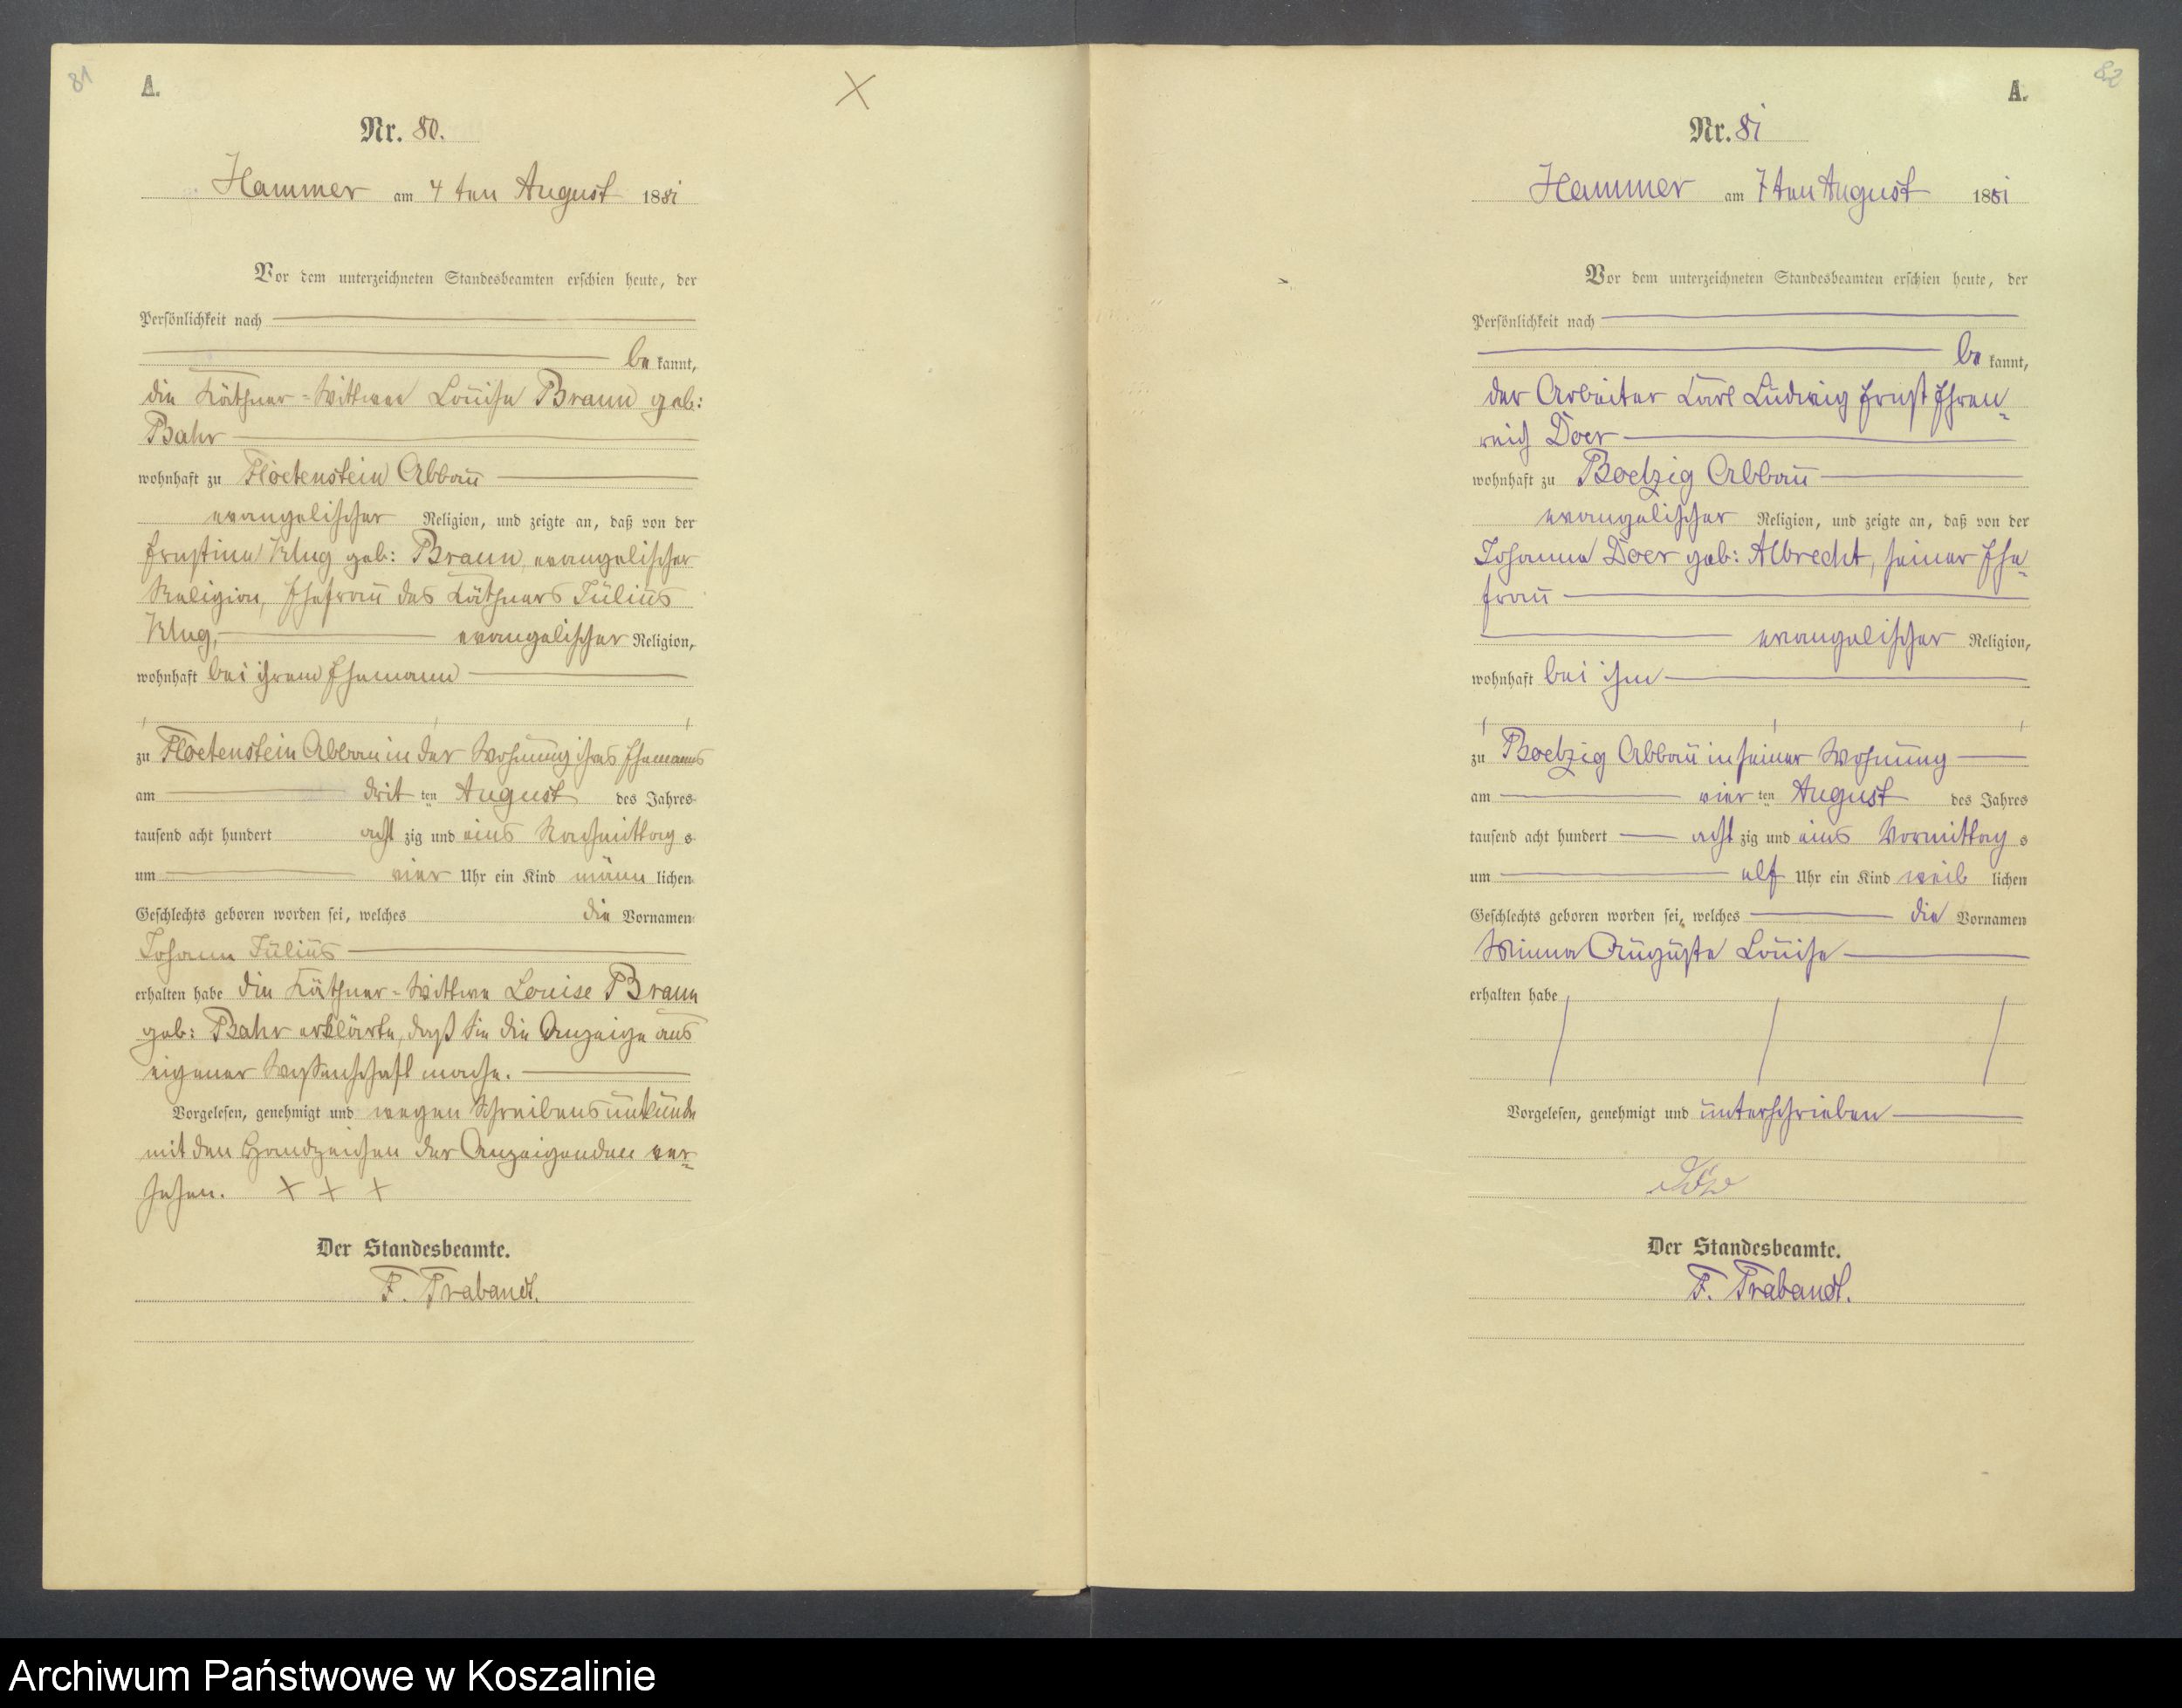 81
A.
Nr. 80.
Hammer am 4ten August 1881
Vor dem unterzeichneten Standesbeamten erschien heute, der
Persönlichkeit nach
be kannt,
die Käthner-Wittwe Louise Braun geb:
Bahr
wohnhaft zu Floetenstein Abbau
evangelischer Religion, und zeigte an, daß von der
Ernstine Klug geb: Braun, evangelischer
Religion, Ehefrau des Käthners Julius
Klug, evangelischer Religion,
wohnhaft bei ihrem Ehemann
zu Floetenstein Abbau in der Wohnung ihres Ehemanns
am drit ten August des Jahres
tausend acht hundert acht zig und eins Nachmittag s
um vier Uhr ein Kind männ lichen
Geschlechts geboren worden sei, welches die Vornamen
Johann Julius
erhalten habe die Käthner-Wittwe Louise Braun
geb: Bahr erklärte, daß sie die Anzeige aus
eigener Wissenschaft mache.
Vorgelesen, genehmigt und wegen Schreibensunkunde
mit den Handzeichen der Anzeigenden ver=
sehen. + + +
Der Standesbeamte.
F. Trabandt.
82
A.
Nr. 81
Hammer am 7ten August 1881
Vor dem unterzeichneten Standesbeamten erschien heute, der
Persönlichkeit nach
be kannt,
der Arbeiter Karl Ludwig Ernst Ehren=
reich Doer
wohnhaft zu Boelzig Abbau
evangelischer Religion, und zeigte an, daß von der
Johanna Doer geb: Albrecht, seiner Ehe=
frau
evangelischer Religion,
wohnhaft bei ihm
zu Boelzig Abbau in seiner Wohnung
am vier ten August des Jahres
tausend acht hundert acht zig und eins Vormittag s
um elf Uhr ein Kind weib lichen
Geschlechts geboren worden sei, welches die Vornamen
Minna Auguste Louise
erhalten habe
Vorgelesen, genehmigt und unterschrieben
Der Standesbeamte.
F. Trabandt.
Archiwum Państwowe w Koszalinie